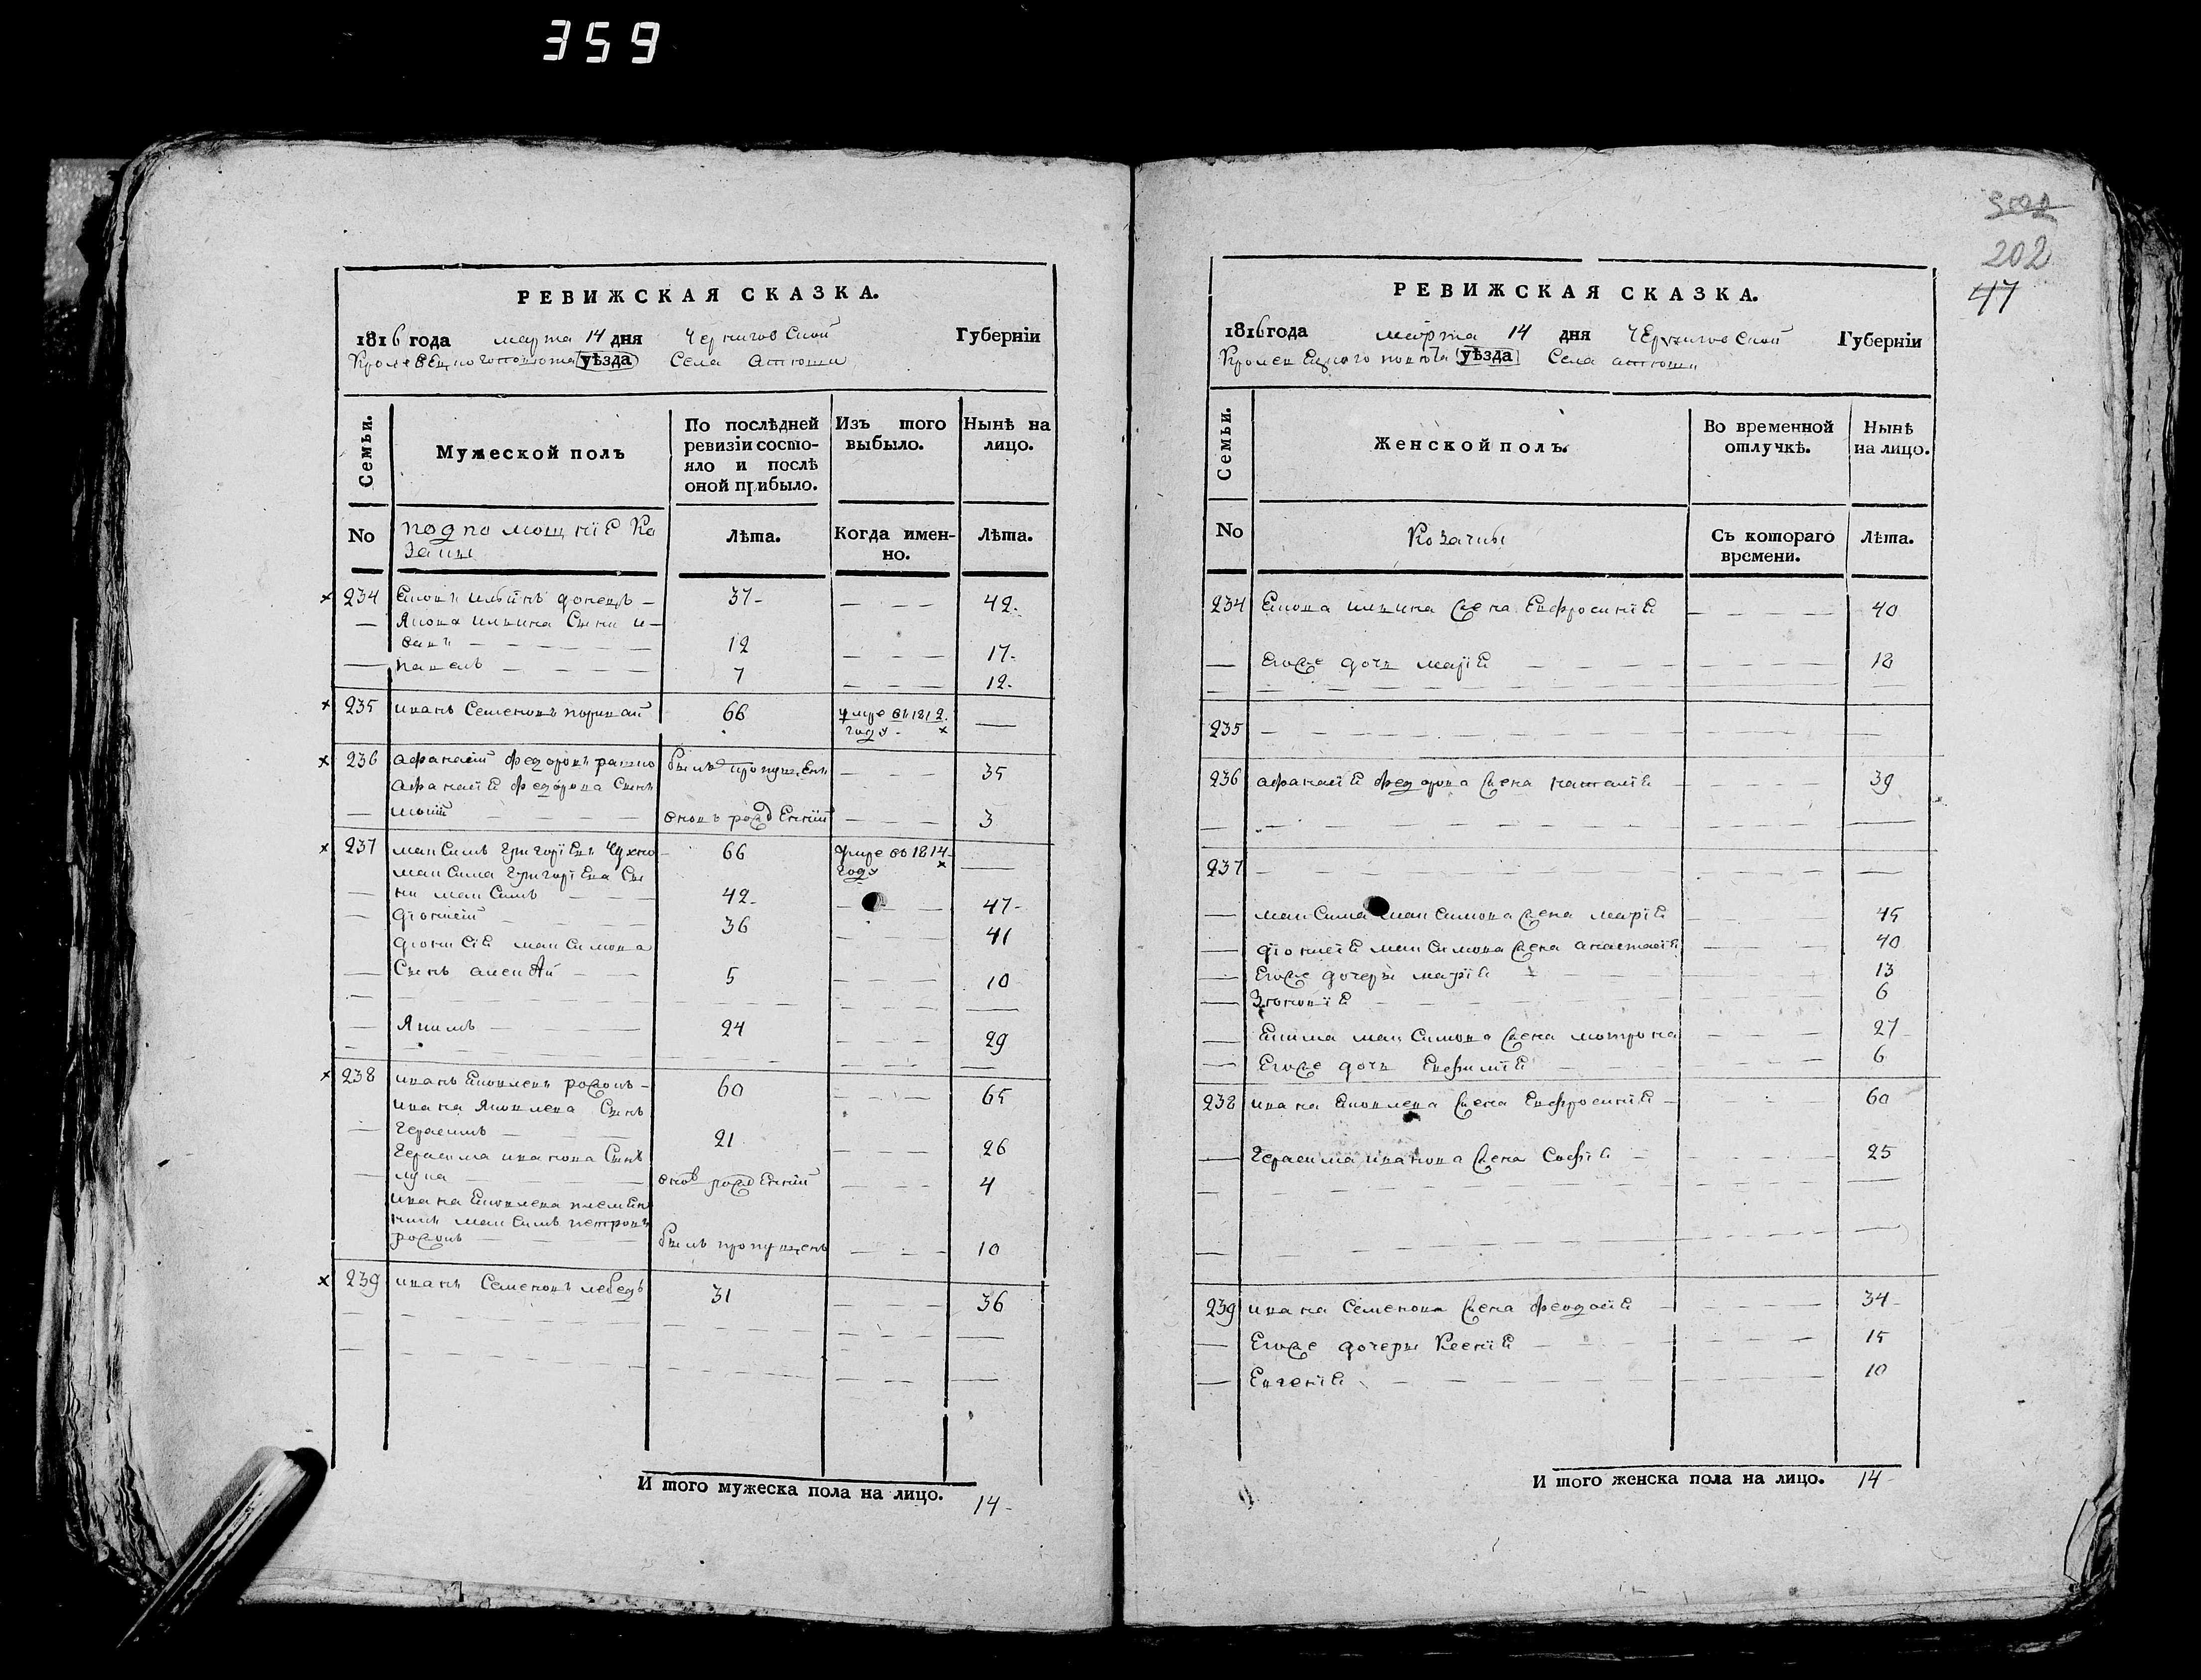 359
РЕВИЖСКАЯ СКАЗКА.
1816 года марта 14 дня Черниговской Губерніи
Кролевецкого повѣта уѣзда Села Атюши
Семьи.
Мужеской полъ
По послѣдней
ревизіи состо-
яло и послѣ
оной прибыло.
Изъ того
выбыло.
Нынѣ на
лицо.
No
подпомощніе Ка
заки
Лѣта.
Когда имен-
но.
Лѣта.
234 Яковъ ильинъ донецъ 37 42
Якова ильина Сыни и-
ванъ 12 17
павелъ 7 12
235 иванъ Семеновъ 66 умре въ 1812
году
236 афанасій федоровъ былъ пропущенъ 35
афанасія федорова Сынъ
вновь рожденній 3
237 максимъ григоріевъ 66 умре въ 1814
году
максима григоріева Сы
ни максимъ 42 47
діонисій 36 41
діонисія максимова
Сынъ алексѣй 5 10
Якимъ 24 29
238 иванъ Яковлевъ рожокъ 60 65
ивана Яковлева Сынъ
герасимъ 21 26
герасима иванова Сынъ
лука внов рожденній 4
ивана Яковлева племен
никъ максимъ петровъ
рожокъ былъ пропущенъ 10
239 иванъ Семеновъ лебедь 31 36
И того мужеска пола на лицо. 14
202
47
РЕВИЖСКАЯ СКАЗКА.
1816 года марта 14 дня Черниговской Губерніи
Кролевецкого повѣта уѣзда Села атюши
Семьи.
Женской полъ.
Во временной
отлучкѣ.
Нынѣ
на лицо.
No
Козачки
Съ котораго
времени.
Лѣта.
234 Якова ильина жена Евфросинія 40
Егоже дочь марія 18
235
236 афанасія федорова жена наталія 39
237
максима максимова жена марія 45
діонисія максимова жена анастасія 40
Егоже дочери марія 13
Зѣновія 6
Якима максимова жена мотрона 27
Егоже дочь Евфимія 6
238 ивана Яковлева жена Евфросинія 60
герасима иванова жена Софія 25
239 ивана Семенова жена феодосія 34
Егоже дочери Ксенія 15
Евгенія 10
И того женска пола на лицо. 14